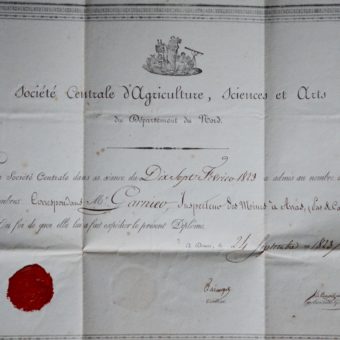 Société Centrale d'Agriculture, Sciences et Arts
du Département du Nord.
Société Centrale dans sa séance du Dix Sept Février 1823 a admis au nombre de
Correspondans Mr. Garnier, Inspecteur des Mines à Arras,
En foi de quoi elle lui a fait expédier le présent Diplôme.
à Douai, le 24 Septembre 1823